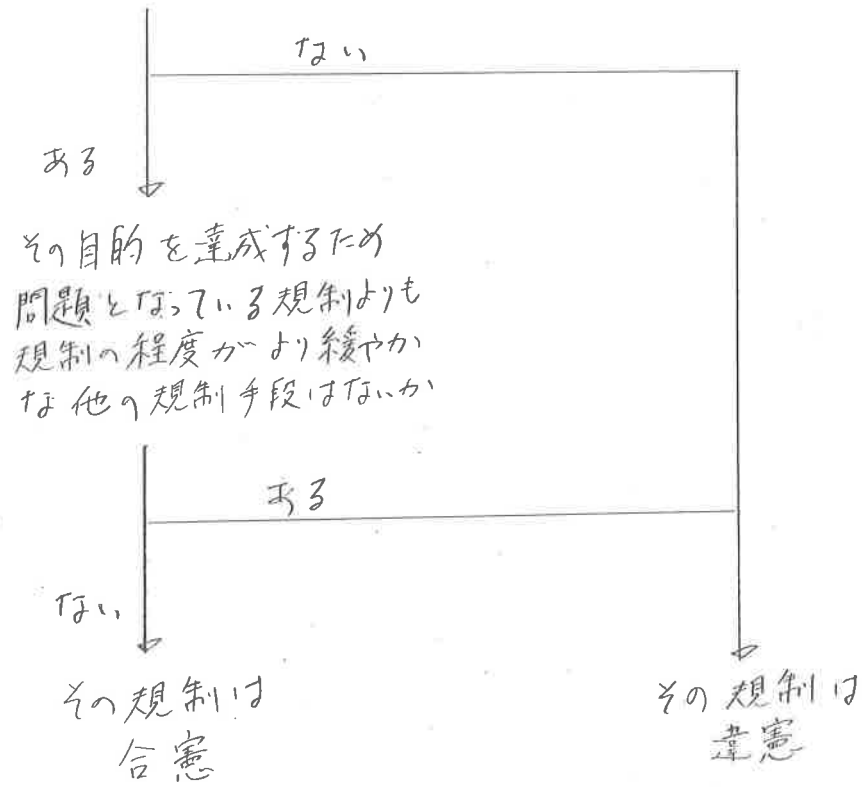 ない
ある
その目的を達成するため
問題となっている規制よりも
規制の程度がより緩やか
な他の規制手段はないか
ある
ない
その規制は
合憲
その規制は
違憲